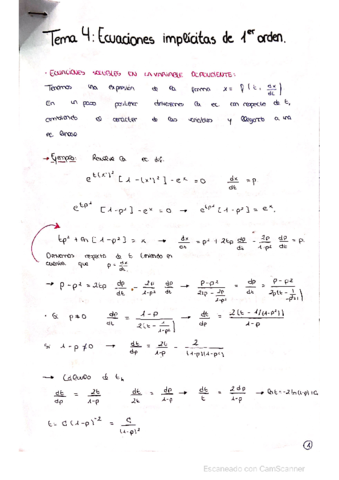 Tema 4: Ecuaciones implícitas de 1er orden.
· ECUACIONES SOLUBLES EN LA VARIABLE DEPENDIENTE:
Tenemos una expresión de la forma x = f(t, dx/dt)
En un paso posterior derivaremos la ec con respecto de t,
el carácter de las variables y llegaré a una
ec lineal
→ Ejemplo: Resolver la ec dif.
e^{t(x')²} [1-(x')²] - e^x = 0    dx/dt = p
e^{tp²} [1-p²] - e^x = 0 → e^{tp²} [1-p²] = e^x.
tp² + ln[1-p²] = x → dx/dt = p² + 2tp dp/dt - 2p/(1-p²) dp/dt = p.
Derivamos respecto de t teniendo en
cuenta que p = dx/dt
→ p-p² = 2tp dp/dt - 2p/(1-p²) dp/dt → (p-p²)/(2tp - 2p/(1-p²)) = dp/dt = (p-p²)/(2p(t - 1/(1-p²)))
· Si p≠0 dp/dt = (1-p)/(2[t - 1/(1-p²)]) → dt/dp = 2[t - 1/(1-p²)]/(1-p)
Si 1-p≠0 → dt/dp = 2t/(1-p) - 2/((1-p)(1-p²))
→ Cálculo de th
dt/dp = 2t/(1-p)    dt/2t = dp/1-p → dt/t = 2dp/1-p → ln t = -2 ln(1-p)+C
t = C(1-p)^{-2} = C/(1-p)²
1
Escaneado con CamScanner